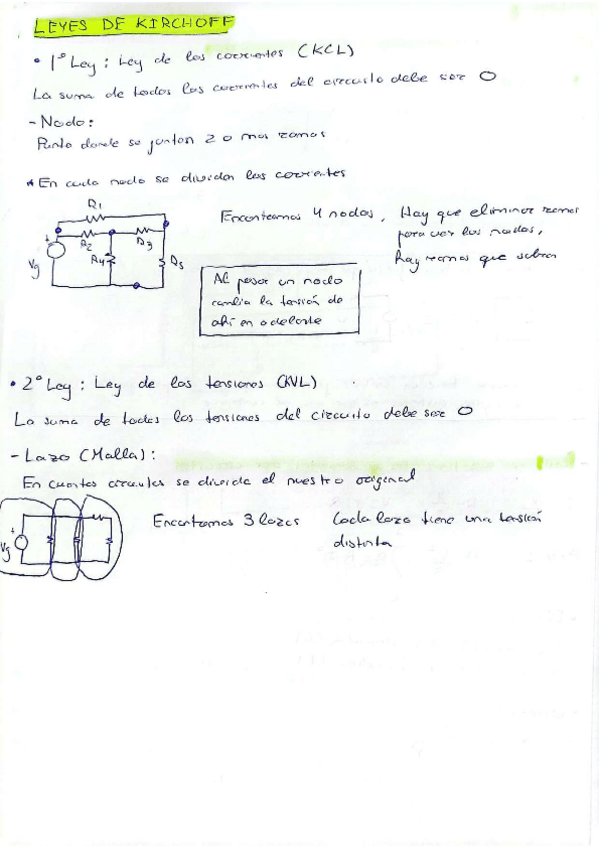 LEYES DE KIRCHOFF
• 1º Ley: Ley de las corrientes (KCL)
La suma de todas las corrientes del circuito debe ser 0
- Nodo:
Punto donde se juntan 2 o mas ramas
* En cada nodo se dividen las corrientes
R1
R2
R3
R4
R5
+
Vg
Encontramos 4 nodos, Hay que eliminar ramas
para ver los nodos,
Hay ramas que sobran
Al pasar un nodo
cambia la tensión de
ahí en adelante
• 2º Ley: Ley de las tensiones (KVL)
La suma de todas las tensiones del circuito debe ser 0
- Lazo (Malla):
En cuantos circuitos se divide el nuestro original
+
Vg
Encontramos 3 lazos
Cada lazo tiene una tensión
distinta